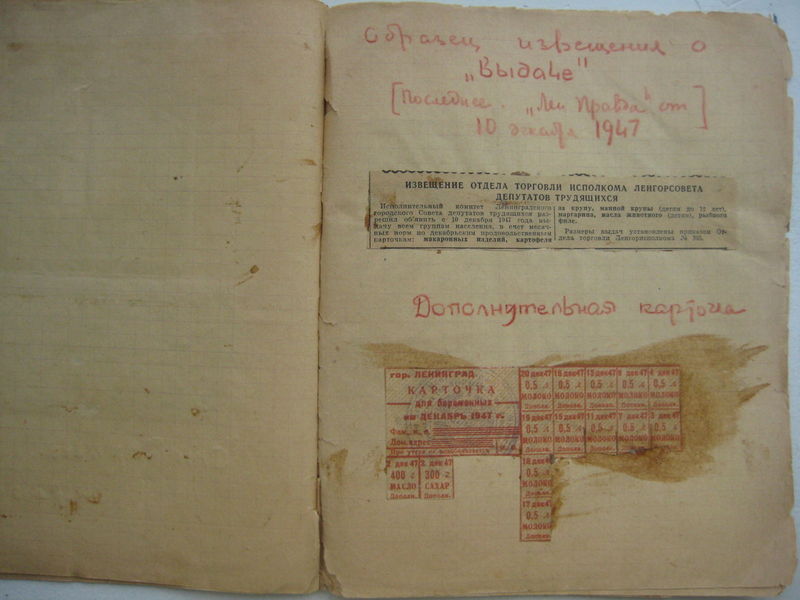 Образец извещения о
„Выдаче"
[Последнее. „Лен Правда" от]
10 декабря 1947
ИЗВЕЩЕНИЕ ОТДЕЛА ТОРГОВЛИ ИСПОЛКОМА ЛЕНГОРСОВЕТА
ДЕПУТАТОВ ТРУДЯЩИХСЯ
Исполнительный комитет Ленинградского
городского Совета депутатов трудящихся раз-
решил объявить с 10 декабря 1947 года вы-
дачу всем группам населения, в счет месяч-
ных норм по декабрьским продовольственным
карточкам: макаронных изделий, картофеля
за крупу, манной крупы (детям до 12 лет),
маргарина, масла животного (детям), рыбного
филе.
Размеры выдач установлены приказом От-
дела торговли Ленгорисполкома №
Дополнительная карточка
гор. ЛЕНИНГРАД
КАРТОЧКА
для беременных
на ДЕКАБРЬ 1947 г.
Фам., и., о.
Дом. адрес
При утере не возобновляется
20 дек 47 16 дек 47 13 дек 47 8 дек 47 4 дек 47
0,5 л 0,5 л 0,5 л 0,5 л 0,5 л
МОЛОКО МОЛОКО МОЛОКО МОЛОКО МОЛОКО
Дополн. Дополн. Дополн. Дополн. Дополн.
19 дек 47 15 дек 47 11 дек 47 7 дек 47 3 дек 47
0,5 л 0,5 л 0,5 л 0,5 л 0,5 л
МОЛОКО МОЛОКО МОЛОКО МОЛОКО МОЛОКО
Дополн. Дополн. Дополн. Дополн. Дополн.
дек 47 2 дек 47 18 дек 47
400 г 300 г 0,5 л
МАСЛО САХАР МОЛОКО
Дополн. Дополн. Дополн.
17 дек 47
0,5 л
МОЛОКО
Дополн.